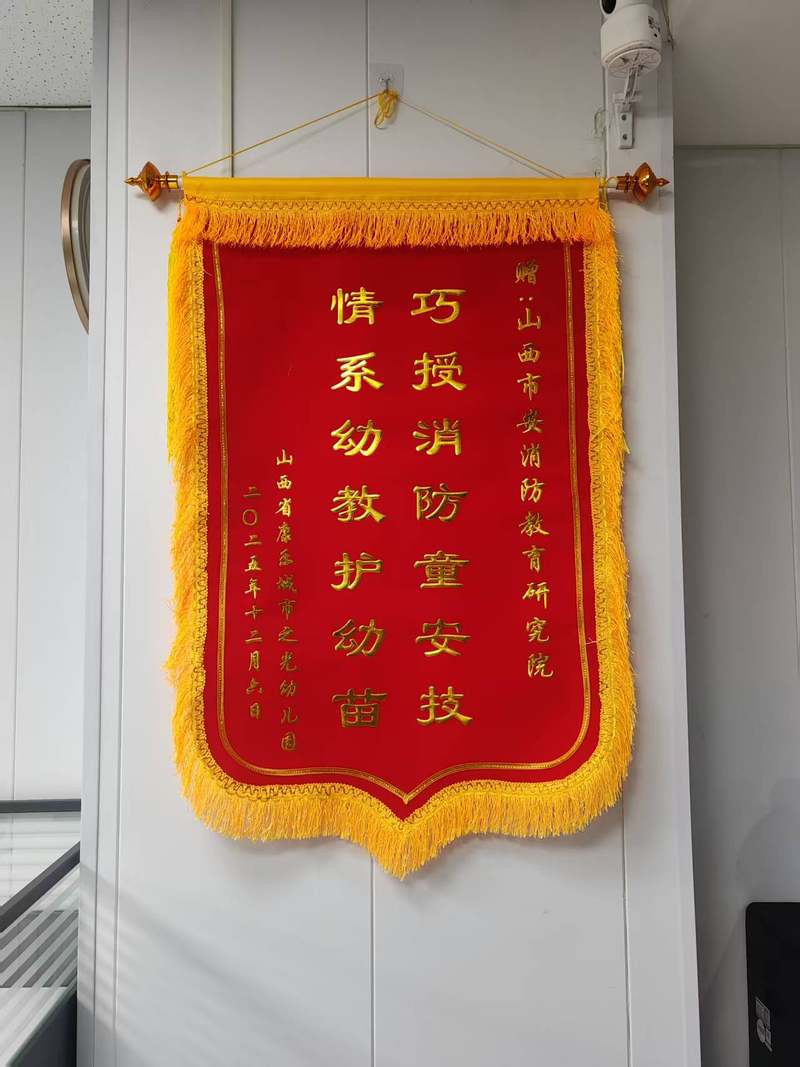 赠:山西市安消防教育研究院
巧授消防童安技
情系幼教护幼苗
山西省康乐城市之光幼儿园
二〇二五年十二月六日